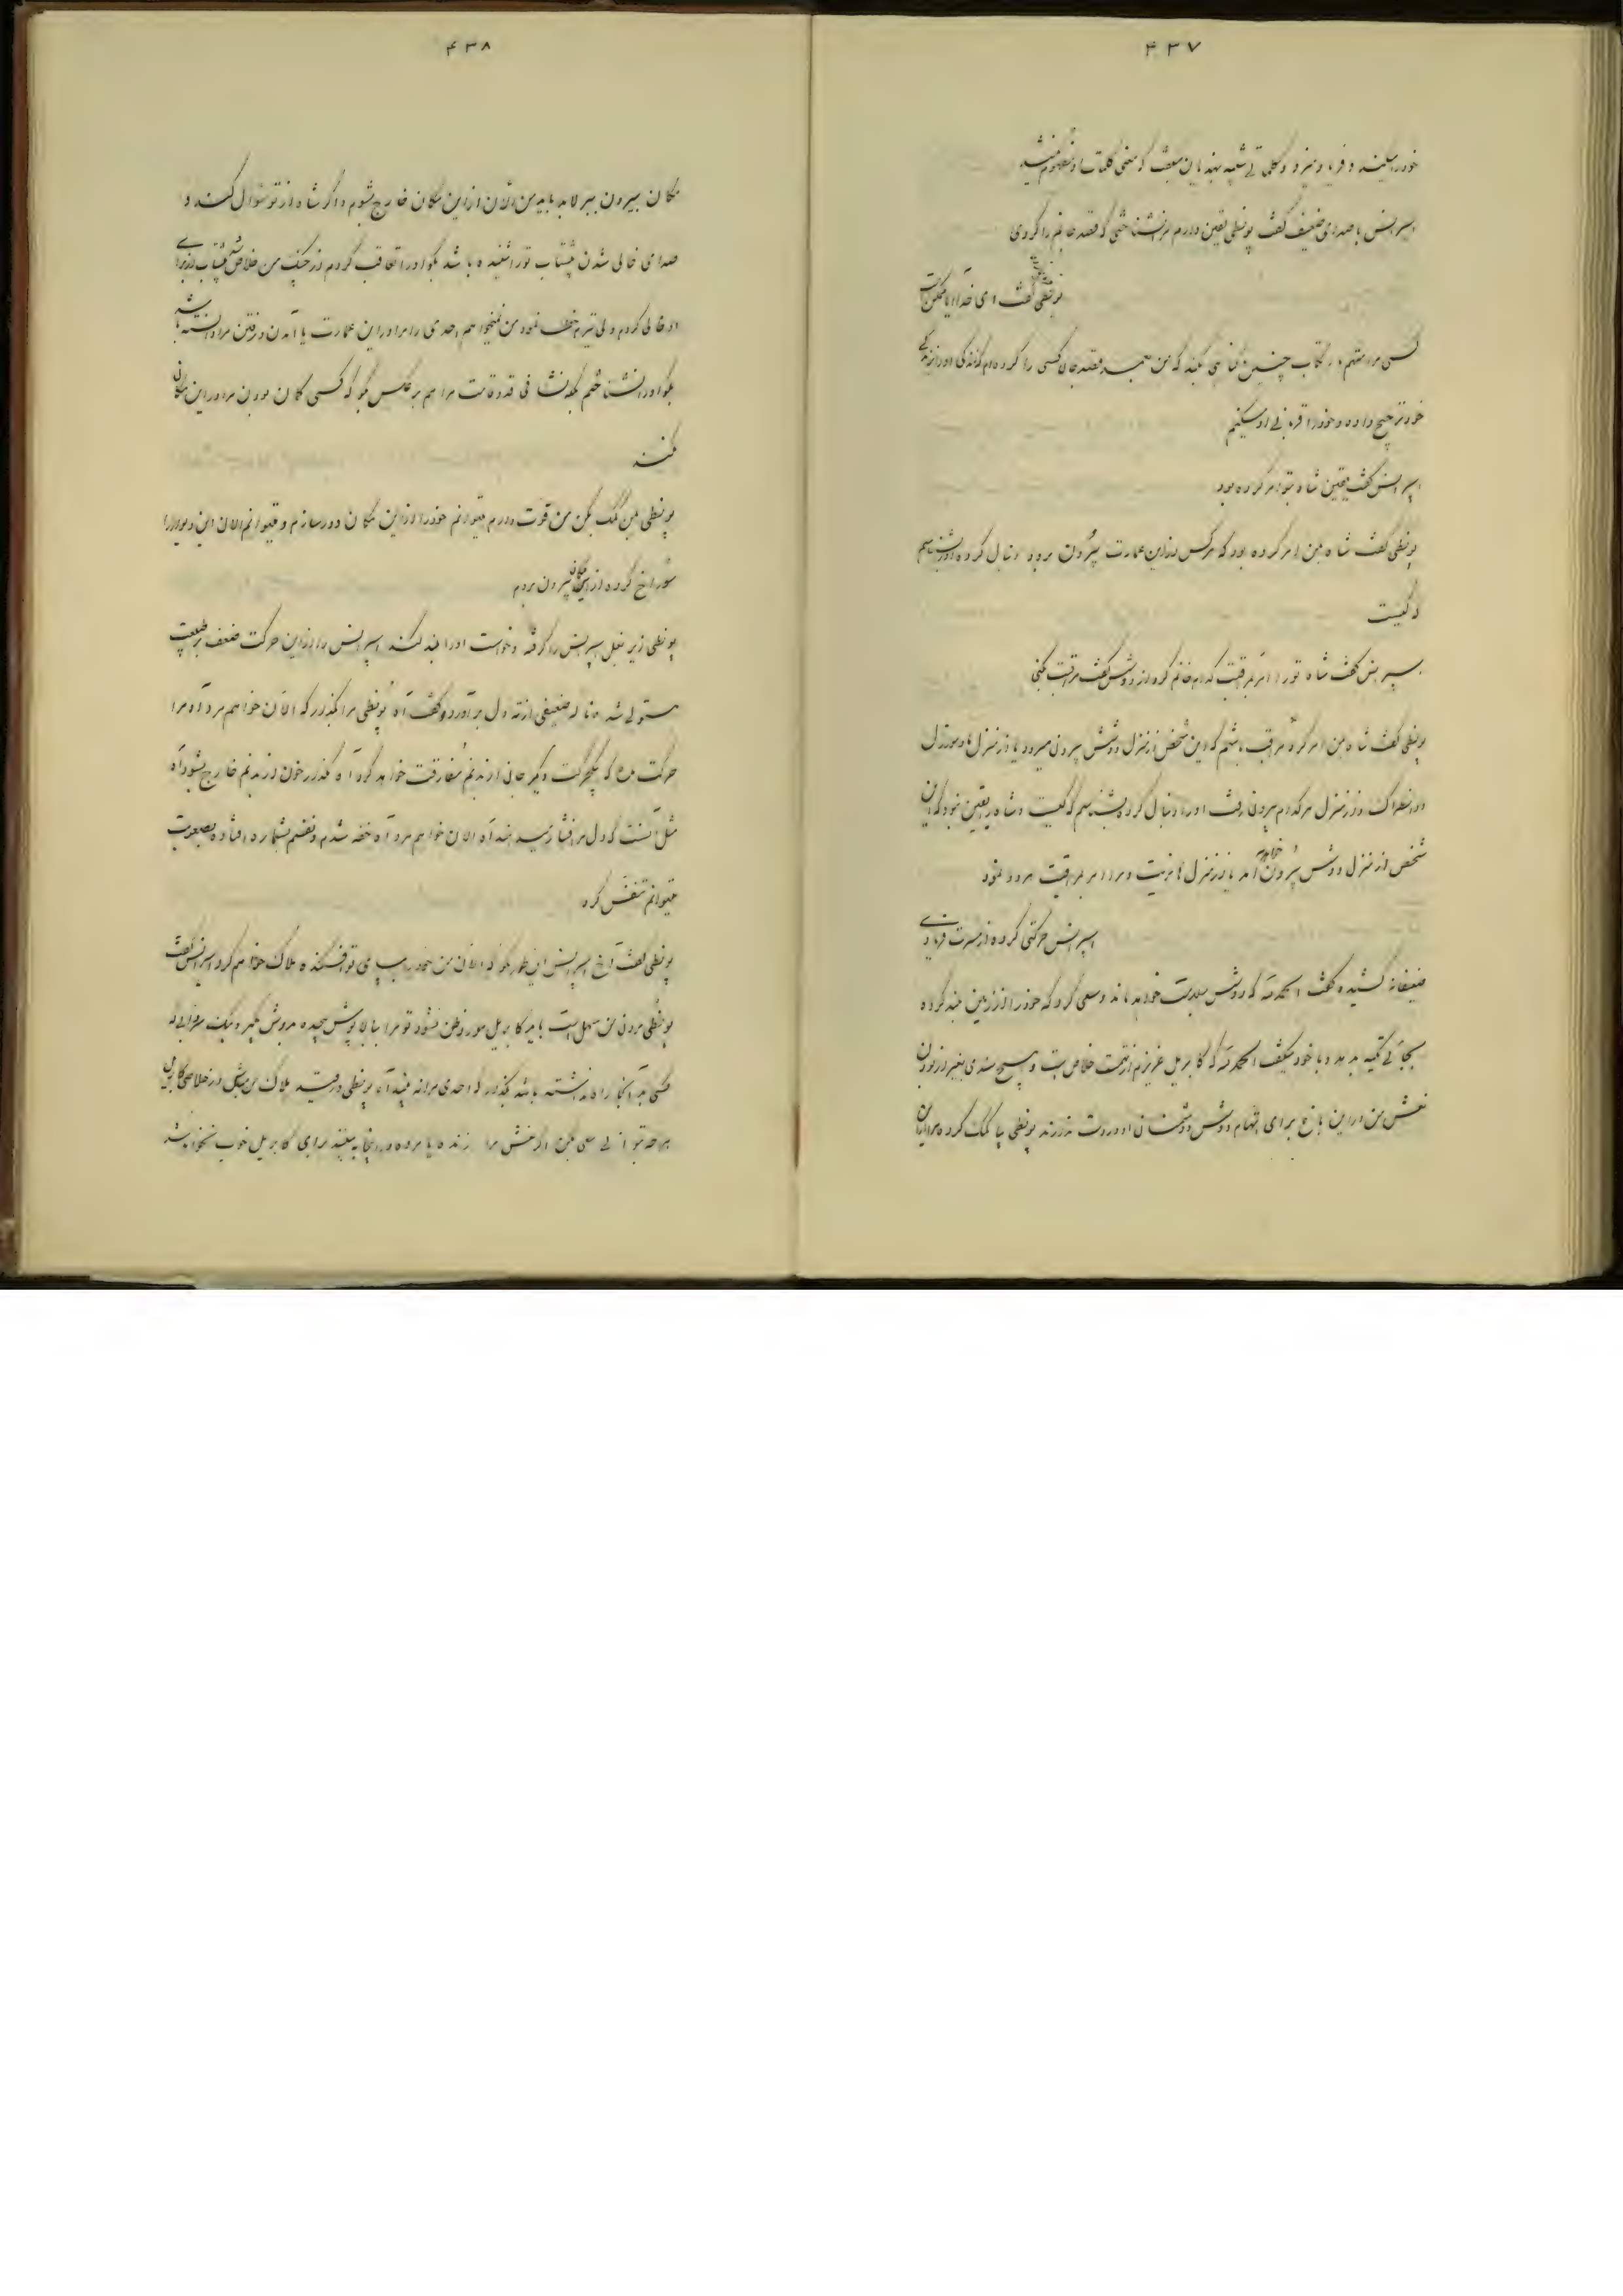 ۴۳۷
اسپرانس با صدای ضعیف گفت بونطی یقین دارم مرا نشناختی که قصد جانم را کردی
بونطی گفت ای خدا آیا ممکن است
کسی مرا متهم بارتکاب چنین گناهی بکند که من قصد جان کسی را کرده‌ام که زندگی او را بزندگی
خود ترجیح داده و خود را قربانی او میکنم
اسپرانس گفت یقین شاه بتو امر کرده بود
بونطی گفت شاه بمن امر کرده بود که هرکس از این عمارت بیرون برود دنبال کرده او را بشناسم
که کیست
اسپرانس گفت شاه تو را امر بمراقبت کدام خانم کرده از دوشس گفت مراقبت بکنی
بونطی گفت شاه بمن امر کرد مراقب باشم که این شخص از منزل دوشس بیرون میرود یا از منزل مادموازل
دانطراک و از منزل هرکدام بیرون رفت او را دنبال کرده بشناسم که کیست و شاه یقین نمود که این
شخص از منزل دوشس بیرون خواهد آمد یا از منزل هانریت و مرا امر بمراقبت هر دو نمود
اسپرانس حرکتی کرده از مسرت فریادی
ضعیفانه کشیده گفت الحمدلله که دوشس سلامت خواهد ماند و سعی کرد که خود را از زمین بلند کرده
بجائی تکیه بدهد و با خود میگفت الحمدلله که گابریل عزیزم از تهمت خلاص است و هیچ سندی بغیر از بودن
نعش من در این باغ برای اتهام دوشس دشمنان او در دست ندارند بونطی بیا کمک کرده مرا از این
۴۳۸
مکان بیرون ببر لابد باید من الآن از این مکان خارج شوم و اگر شاه از تو سؤال کند و
صدای خالی شدن پیشتاب تو را شنیده باشد بگو او را تعاقب کردم از چنگ من خلاص شد و پیشتابی برای
او خالی کردم ولی تیرم خطا نمود من نمیخواهم احدی را مرا در این عمارت یا آمدن و رفتن مرا دانسته باشد
بگو او را نشناختم بلکه نشانی قد و قامت مرا هم برعکس بگو که کسی گمان بودن مرا در این مکان
نکند
بونطی بمن کمک بکن من قوت دارم میتوانم خود را از این مکان دور سازم و میتوانم الان این دیوار را
سوراخ کرده از این مکان بیرون بروم
بونطی زیر بغل اسپرانس را گرفته و خواست او را بلند کند اسپرانس را از این حرکت ضعف بر طبیعت
مستولی شد و ناله ضعیفی از ته دل برآورد و گفت آه بونطی مرا بگذار که الآن خواهم مرد آه مرا
حرکت مده که بیک حرکت دیگر جانی از بدنم مفارقت خواهد کرد آه مگذار خون از بدنم خارج بشود آه
مثل آنست که دل مرا فشار میدهند آه الان خواهم مرد آه خفه شدم و نفسم بشماره افتاد و بصعوبت
میتوانم تنفس کرد
بونطی گفت آخ اسپرانس این طور مگو که الآن من خود را بپای تو افکنده هلاک خواهم کرد اسپرانس گفت
بونطی مردن من سهل است باید گابریل مورد ظن نشود تو مرا با بالاپوش پیچیده بدوش بگیر و بیک
کسی بآنجا راه نداشته باشد بگذار که احدی مرا نبیند آه بونطی در قید هلاک من مباش در خلاصی گابریل
هر چه توانی سعی بکن اگر نعش مرا زنده یا مرده در اینجا ببینند برای گابریل خوب نخواهد شد